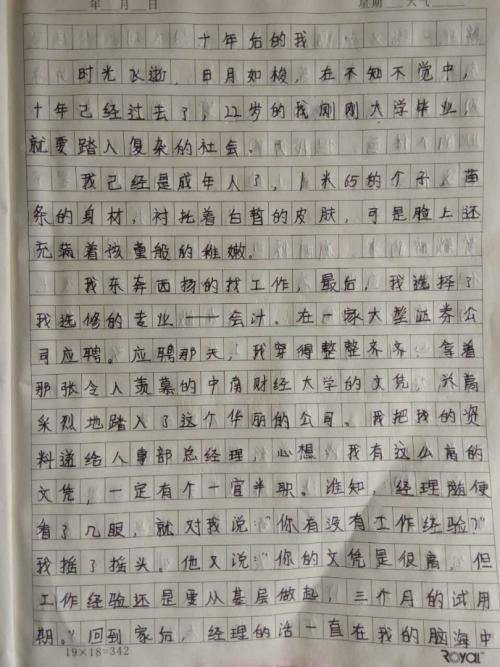 年 月 日 星期 天气
十年后的我
时光飞逝，日月如梭，在不知不觉中，
十年已经过去了，22岁的我刚刚大学毕业，
就要踏入复杂的社会。
我已经是成年人了，1米65的个子，苗
条的身材，衬托着白皙的皮肤，可是脸上还
充满着孩童般的稚嫩。
我东奔西扬的找工作，最后，我选择了
我选修的专业——会计。在一家大型证券公
司应聘。应聘那天，我穿得整整齐齐，拿着
那张令人羡慕的中南财经大学的文凭，兴高
采烈地踏入了这个华丽的公司。我把我的资
料递给人事部总经理，心想：我有这么高的
文凭，一定有个一官半职。谁知，经理随便
看了几眼，就对我说：“你有没有工作经验？”
我摇了摇头。他又说：“你的文凭是很高，但
工作经验还是要从基层做起，三个月的试用
期。”回到家后，经理的话一直在我的脑海中
19×18=342
ROYAL